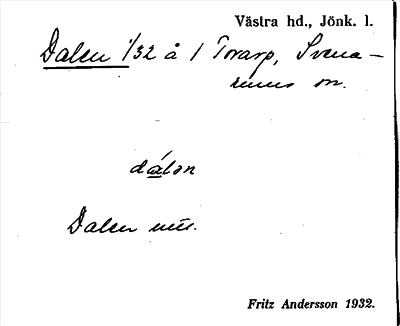 Västra hd., Jönk. l.
Dalen 1/32 å 1 Torarp, Svena-
rums sn.
dálən
Dalen
Fritz Andersson 1932.